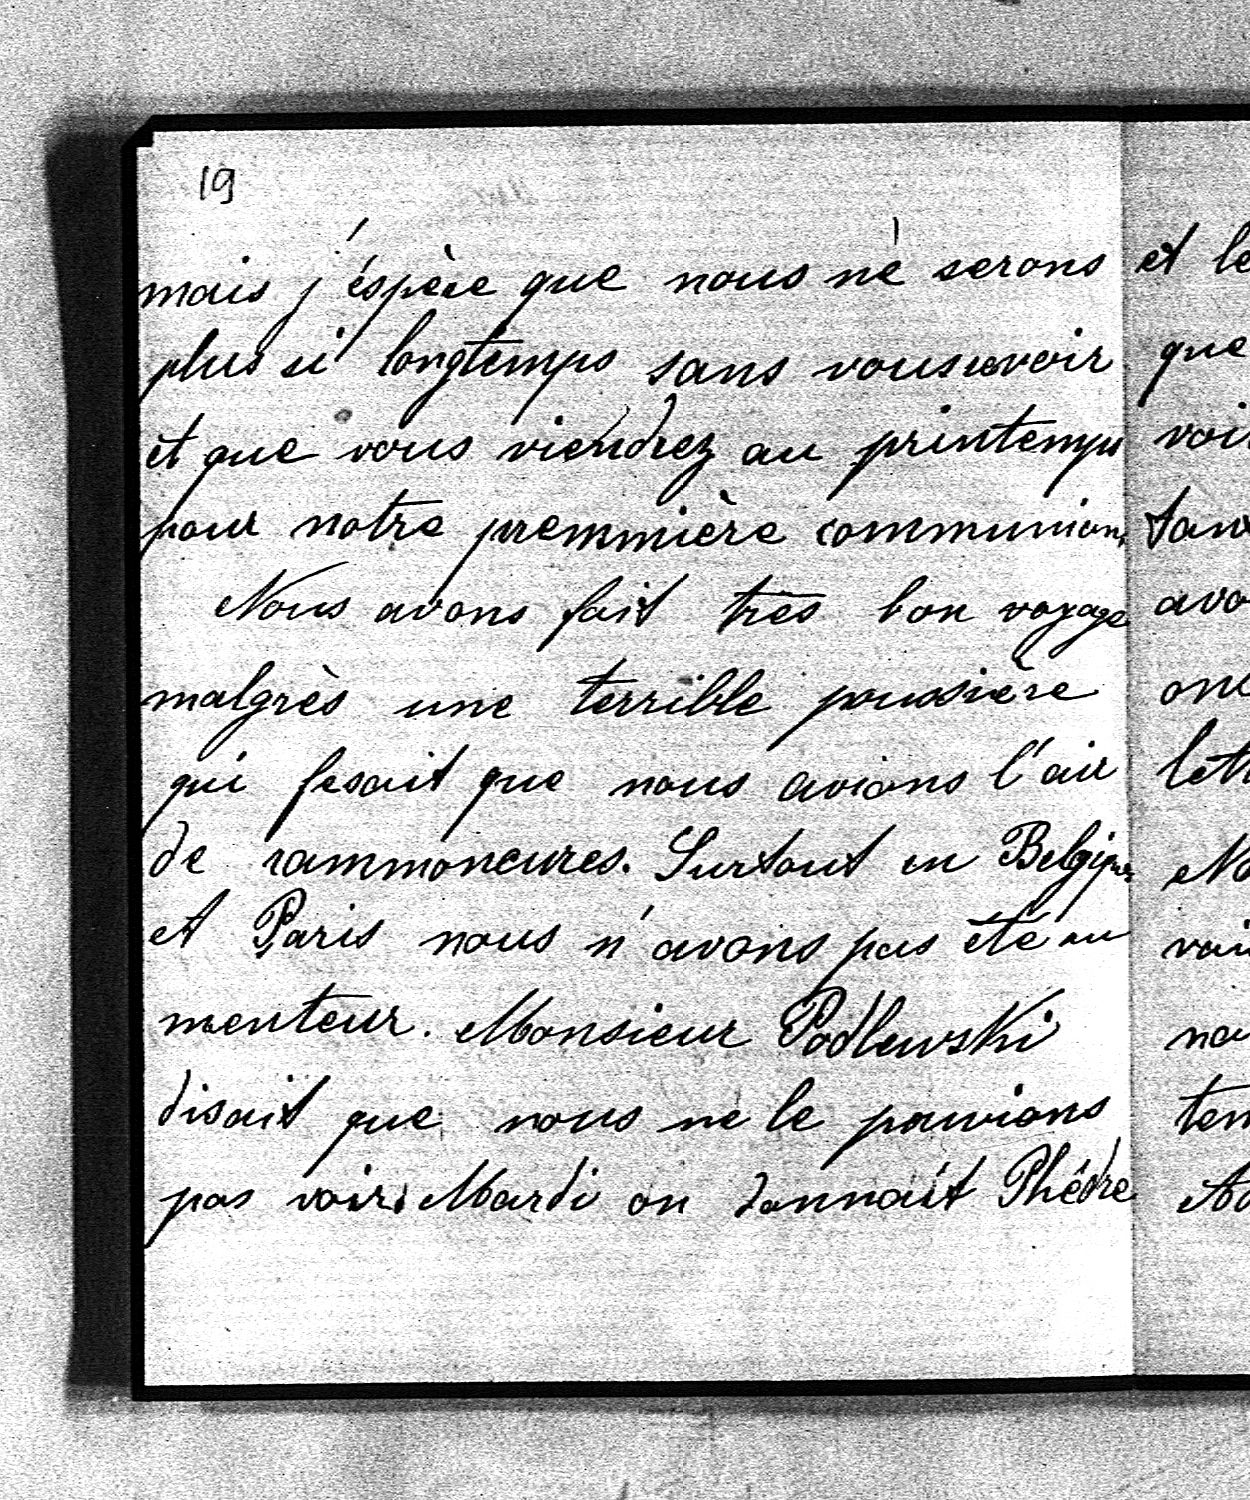 19
mais j'éspère que nous né serons
plus si longtemps sans vous revoir
et que vous viendrez au printemps
pour notre premmière communion.
Nous avons fait très bon voyage
malgrès une terrible poussière
qui fesait que nous avions l'air
de rammoneures. Surtout en Belgique
et Paris nous n'avons pas été au
menteur. Monsieur Podlewski
disait que nous ne le pouvions
pas voir. Mardi on donnait Phédre
et le
que
voir
avo
lett
No
na
tem